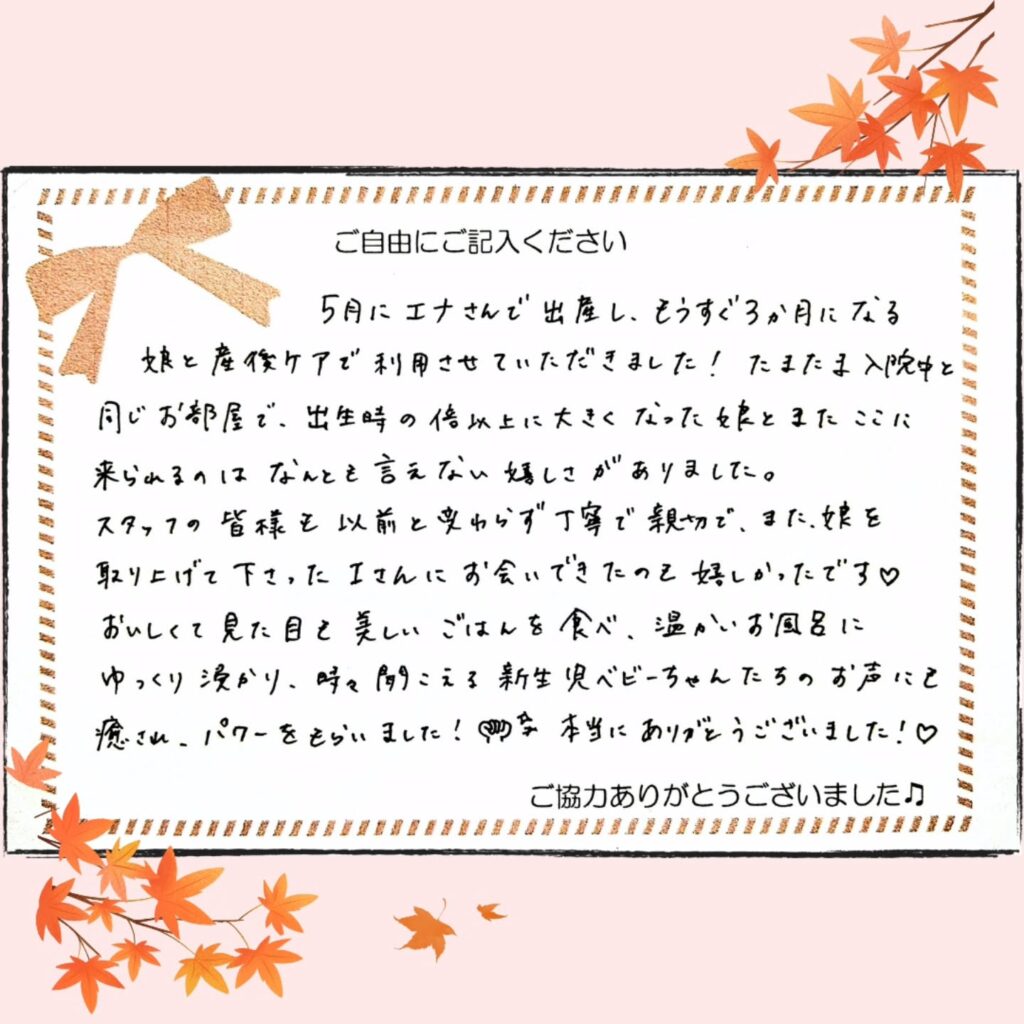 ご自由にご記入ください
5月にエナさんで出産し、もうすぐ3か月になる
娘と産後ケアで利用させていただきました！たまたま入院中と
同じお部屋で、出生時の倍以上に大きくなった娘とまたここに
来られるのはなんとも言えない嬉しさがありました。
スタッフの皆様も以前と変わらず丁寧で親切で、また、娘を
取り上げて下さったIさんにお会いできたのも嬉しかったです♡
おいしくて見た目も美しいごはんを食べ、温かいお風呂に
ゆっくり浸かり、時々聞こえる新生児ベビーちゃんたちのお声にも
癒され、パワーをもらいました！本当にありがとうございました！♡
ご協力ありがとうございました♫